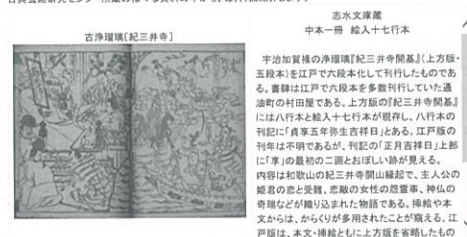 古浄瑠璃『紀三井寺』
志水文庫蔵
中本一冊 絵入十七行本
宇治加賀掾の浄瑠璃『紀三井寺開基』（上方版・
五段本）を江戸で六段本化して刊行したものであ
る。書肆は江戸で六段本を多数刊行していた通
油町の村田屋である。上方版の『紀三井寺開基』
には八行本と絵入十七行本が現存し、八行本の
刊記に「貞享五年弥生吉祥日」とある。江戸版の
刊年は不明であるが、刊記の「正月吉祥日」上部
に「享」の最初の二画とおぼしい跡が見える。
内容は和歌山の紀三井寺開山縁起で、主人公の
姫君の恋と受難、恋敵の女性の怨霊事、神仏の
奇瑞などが織り込まれた物語である。挿絵や本
文からは、からくりが多用されたことが窺える。江
戸版は、本文・挿絵ともに上方版を省略したもの